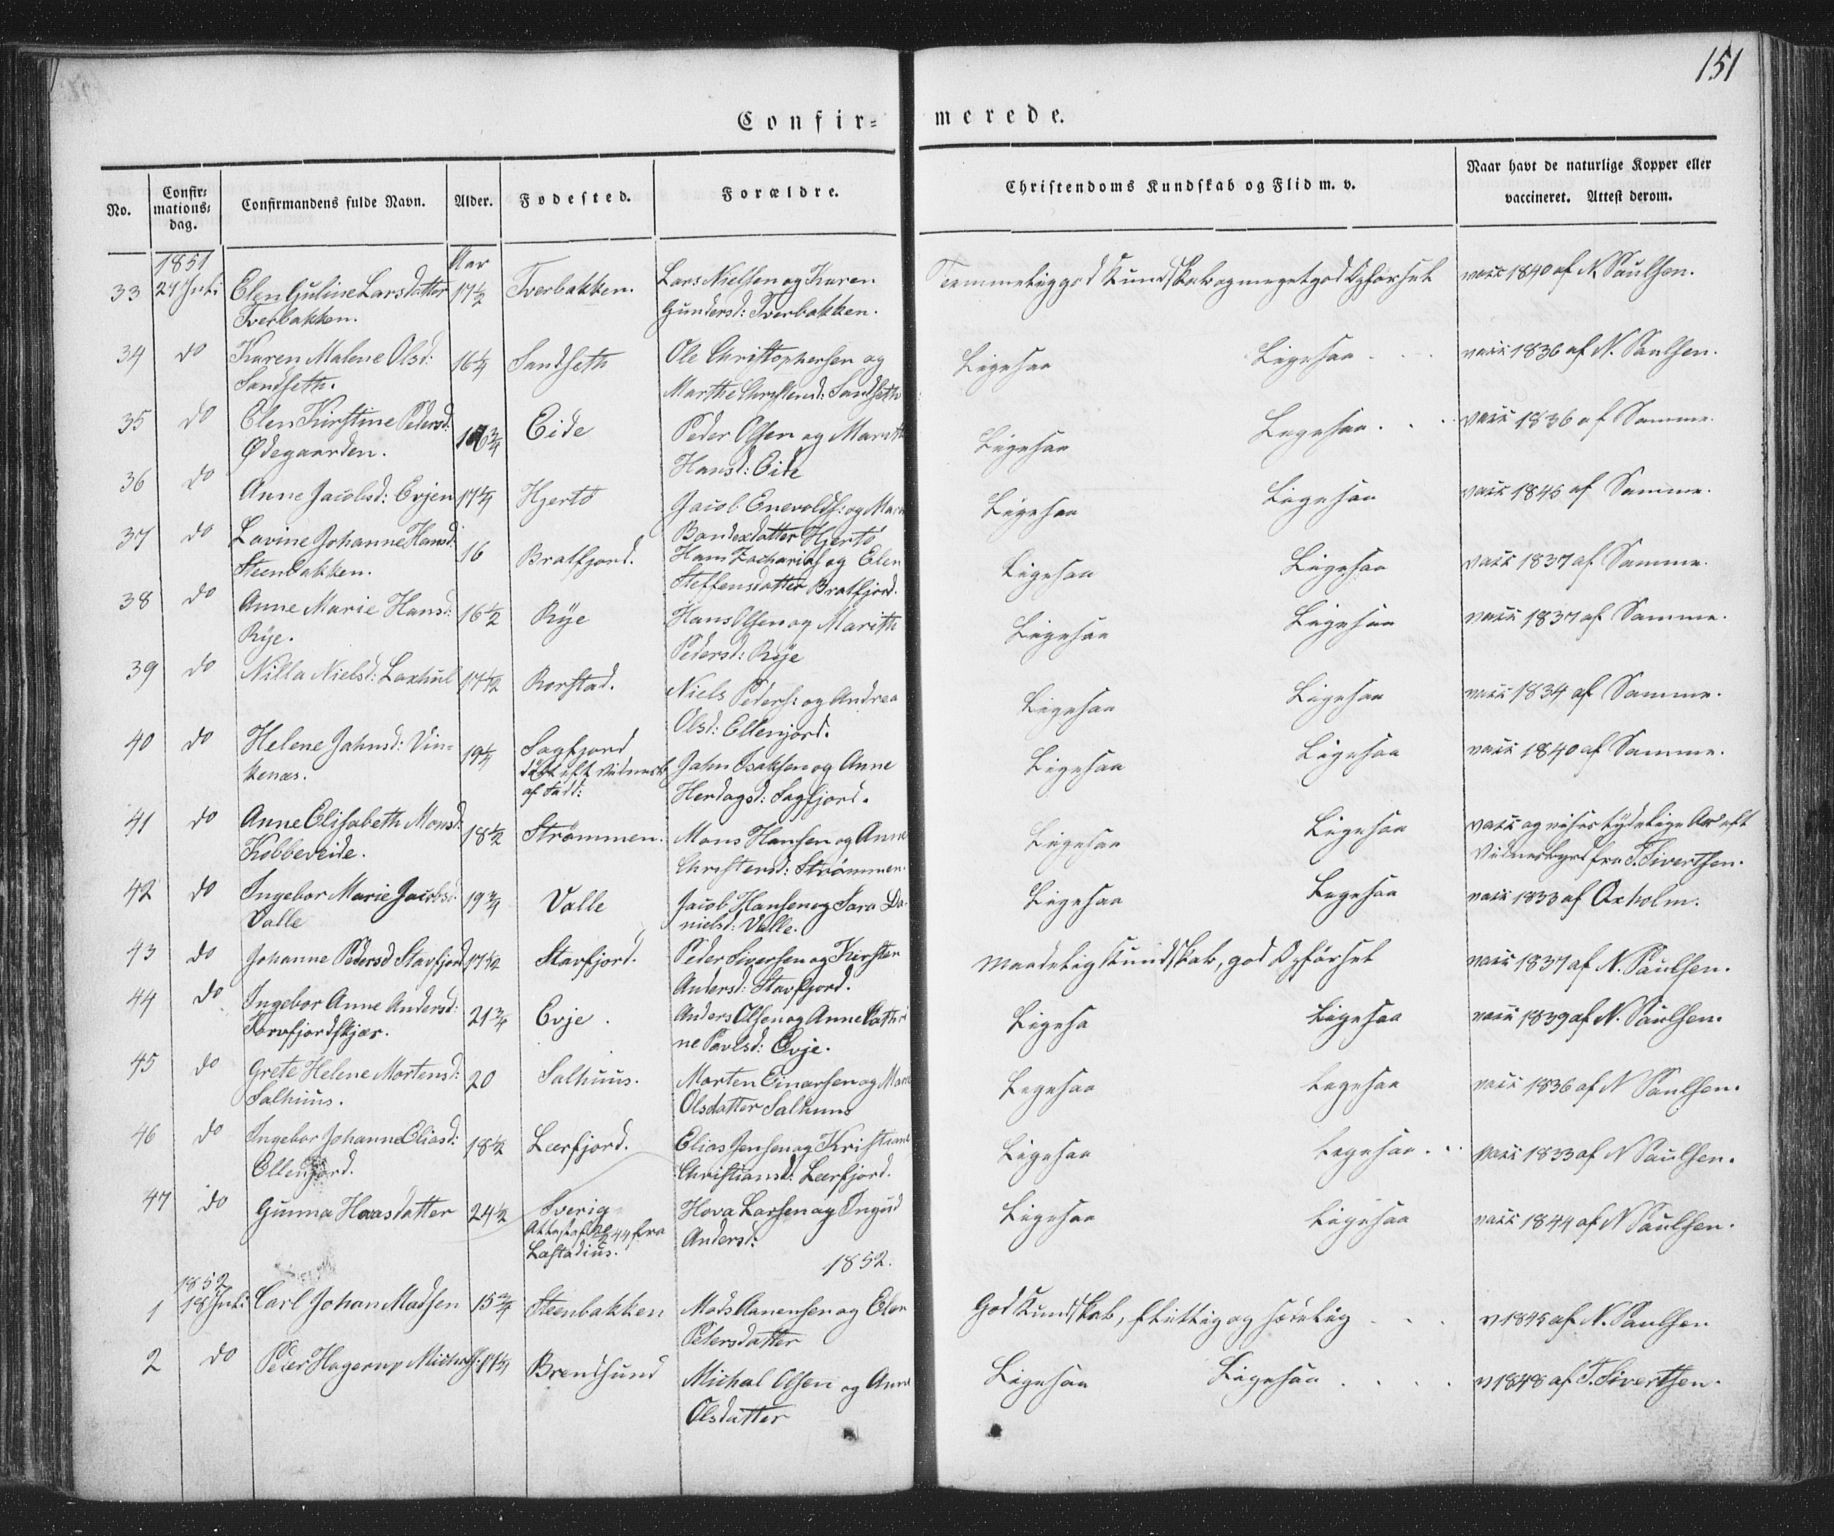 151
Confir= merede.
No.
Confir:
mations:
dag.
Confirmandens fulde Navn.
Alder.
Fødested.
Forældre.
Christendoms Kundskab og Flid m. v.
Naar havt de naturlige Kopper eller
vaccineret. Attest derom.
1851
Aar
33 27 Juli Elen Guline Larsdatter 17½ Tverbakken. Lars Nielsen og Karen Temmelig god Kundskab og meget god Opførsel vacc 1840 af N. Paulsen.
Tverbakken. Gundersd: Tverbakken.
34 do Karen Malene Olsd: 16¼ Sandseth Ole Christophersen og Ligesaa Ligesaa vacc 1836 af N. Paulsen.
Sandseth. Marthe Christensd: Sandseth
35 do Elen Kirstine Pedersd: 16¾ Eide Peder Olsen og Marith Ligesaa Ligesaa vacc 1836 af Samme.
Ødegaarden. Hansd: Eide
36 do Anne Jacobsd: Evjen 17¼ Hjertø Jacob Enevolds: og Ligesaa Ligesaa vacc 1845 af Samme.
Hjertø
37 do Lovine Johanne Hansd: 16 Bratfjord. Hans Zacharias og Elen Ligesaa Ligesaa vacc 1837 af Samme.
Steenbakken. Steffensdatter Bratfjord.
38 do Anne Marie Hansd: 16½ Røye Hans Olsen og Marith Ligesaa Ligesaa vacc 1837 af Samme.
Røye. Pedersd: Røye
39 do Nilla Nielsd: Laxhul 17½ Rorstad. Niels Peders: og Andrea Ligesaa Ligesaa vacc 1834 af Samme.
Olsd: Ellenjord.
40 do Helene Jahnsd: Vin- 19¼ Sagfjord Jahn Isaksen og Anne Ligesaa Ligesaa vacc 1840 af Samme.
kenæs. døbt eft Vidnesb
af Fadd: Herdagsd: Sagfjord.
41 do Anne Elisabeth Monsd: 18½ Strømmen. Mons Hansen og Anne Ligesaa Ligesaa vacc og viser tydelige Ar eft
Kobbeveide. Christensd: Strømmen. Vidnesbyrd fra T. Sivertsen.
42 do Ingebor Marie Jacobsd: 19¾ Valle Jacob Hansen og Sara Da- Ligesaa Ligesaa vacc 1833 af Oxholm.
Valle nielsd: Valle.
43 do Johanne Pedersd Stavfjord 17½ Stavfjord. Peder Siversen og Kirsten Maadelig Kundskab, god Opførsel vacc 1837 af N. Paulsen.
Andersd: Stavfjord.
44 do Ingebor Anne Andersd: 21¾ Evje. Anders Olsen og Anne Cathri Ligesa Ligesaa vacc 1839 af N. Paulsen.
Torvfjordskjær. ne Pavelsd: Evje.
45 do Grete Helene Mortensd: 20 Salhuus. Morten Einarsen og Ligesaa Ligesaa vacc 1836 af N Paulsen.
Salhuus. Olsdatter Salhuus
46 do Ingebor Johanne Eliasd: 18½ Leerfjord. Elias Jensen og Kristiane Ligesaa Ligesaa vacc 1833 af N Paulsen.
Ellenjord. Christiansd: Leerfjord.
47 do Gunna Haasdatter 24½ Sverig Hova Larsen og Ingrid Ligesaa Ligesaa vacc 1844 af N Paulsen.
Attest af 44 fra
Læstadius. Andersd:
1852.
1852
1 18 Juli Carl Johan Madsen 15¾ Steenbakken Mads Aanensen og Elen God Kundskab, flittig og sædelig v 1845 af N. Paulsen
Petersdatter
2 do Peter Hagerup Michals: 17¼ Brendsund Michal Olsen og Anne Ligesaa Ligesaa v 1848 af T. Sivertsen.
Olsdatter